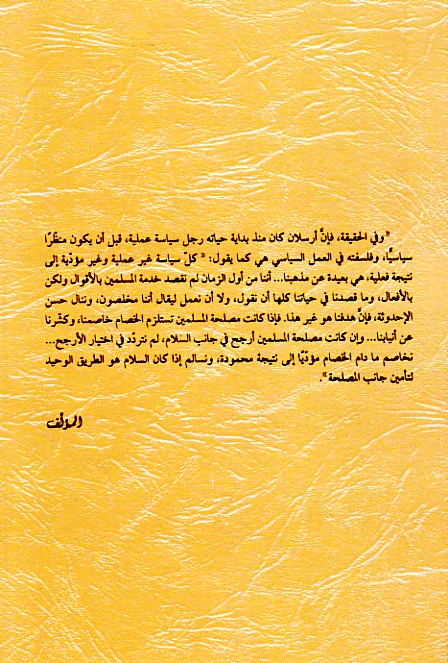 "وفي الحقيقة، فإنَّ أرسلان كان منذ بداية حياته رجل سياسة عملية، قبل أن يكون منظّرًا
سياسيًّا، وفلسفته في العمل السياسي هي كما يقول: "كلّ سياسة غير عملية وغير مؤدّية إلى
نتيجة فعلية، هي بعيدة عن مذهبنا... أننا من أول الزمان لم نقصد خدمة المسلمين بالأقوال ولكن
بالأفعال، وما قصدنا في حياتنا كلها أن نقول، ولا أن نعمل ليقال أننا مخلصون، وننال حسن
الإحدوثة، فإنَّ هدفنا هو غير هذا. فإذا كانت مصلحة المسلمين تستلزم الخصام خاصمنا، وكشّرنا
عن أنيابنا... وإن كانت مصلحة المسلمين أرجح في جانب السلام، لم نتردّد في اختيار الأرجح...
نخاصم ما دام الخصام مؤدّيًا إلى نتيجة محمودة، ونسالم إذا كان السلام هو الطريق الوحيد
لتأمين جانب المصلحة".
المؤلف